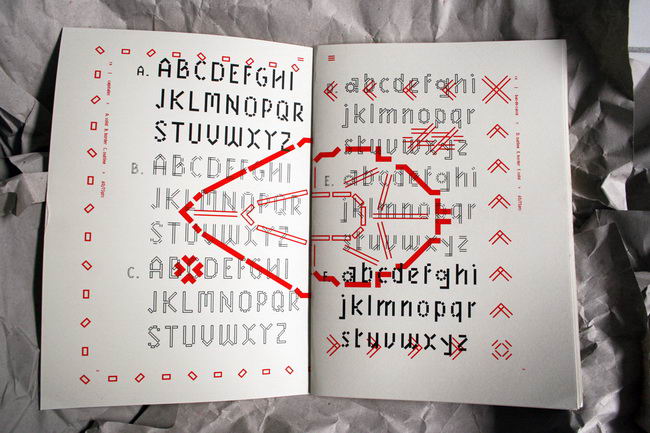 A. ABCDEFGHI
JKLMNOPQR
STUVWXYZ
B. ABCDEFGHI
JKLMNOPQR
STUVWXYZ
C. ABCDEFGHI
JKLMNOPQR
STUVWXYZ
D. abcdefghi
jklmnopqr
stuvwxyz
E. abcdefghi
jklmnopqr
stuvwxyz
F. abcdefghi
jklmnopqr
stuvwxyz